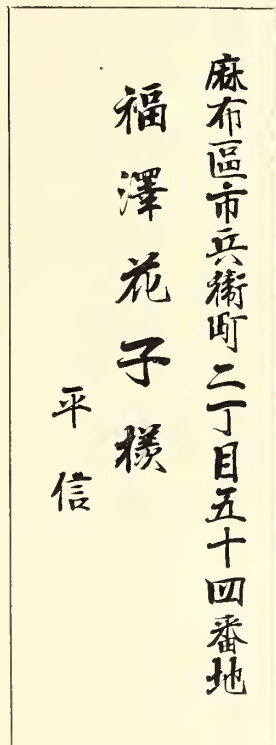 麻布區市兵衞町二丁目五十四番地
福澤花子樣
平信